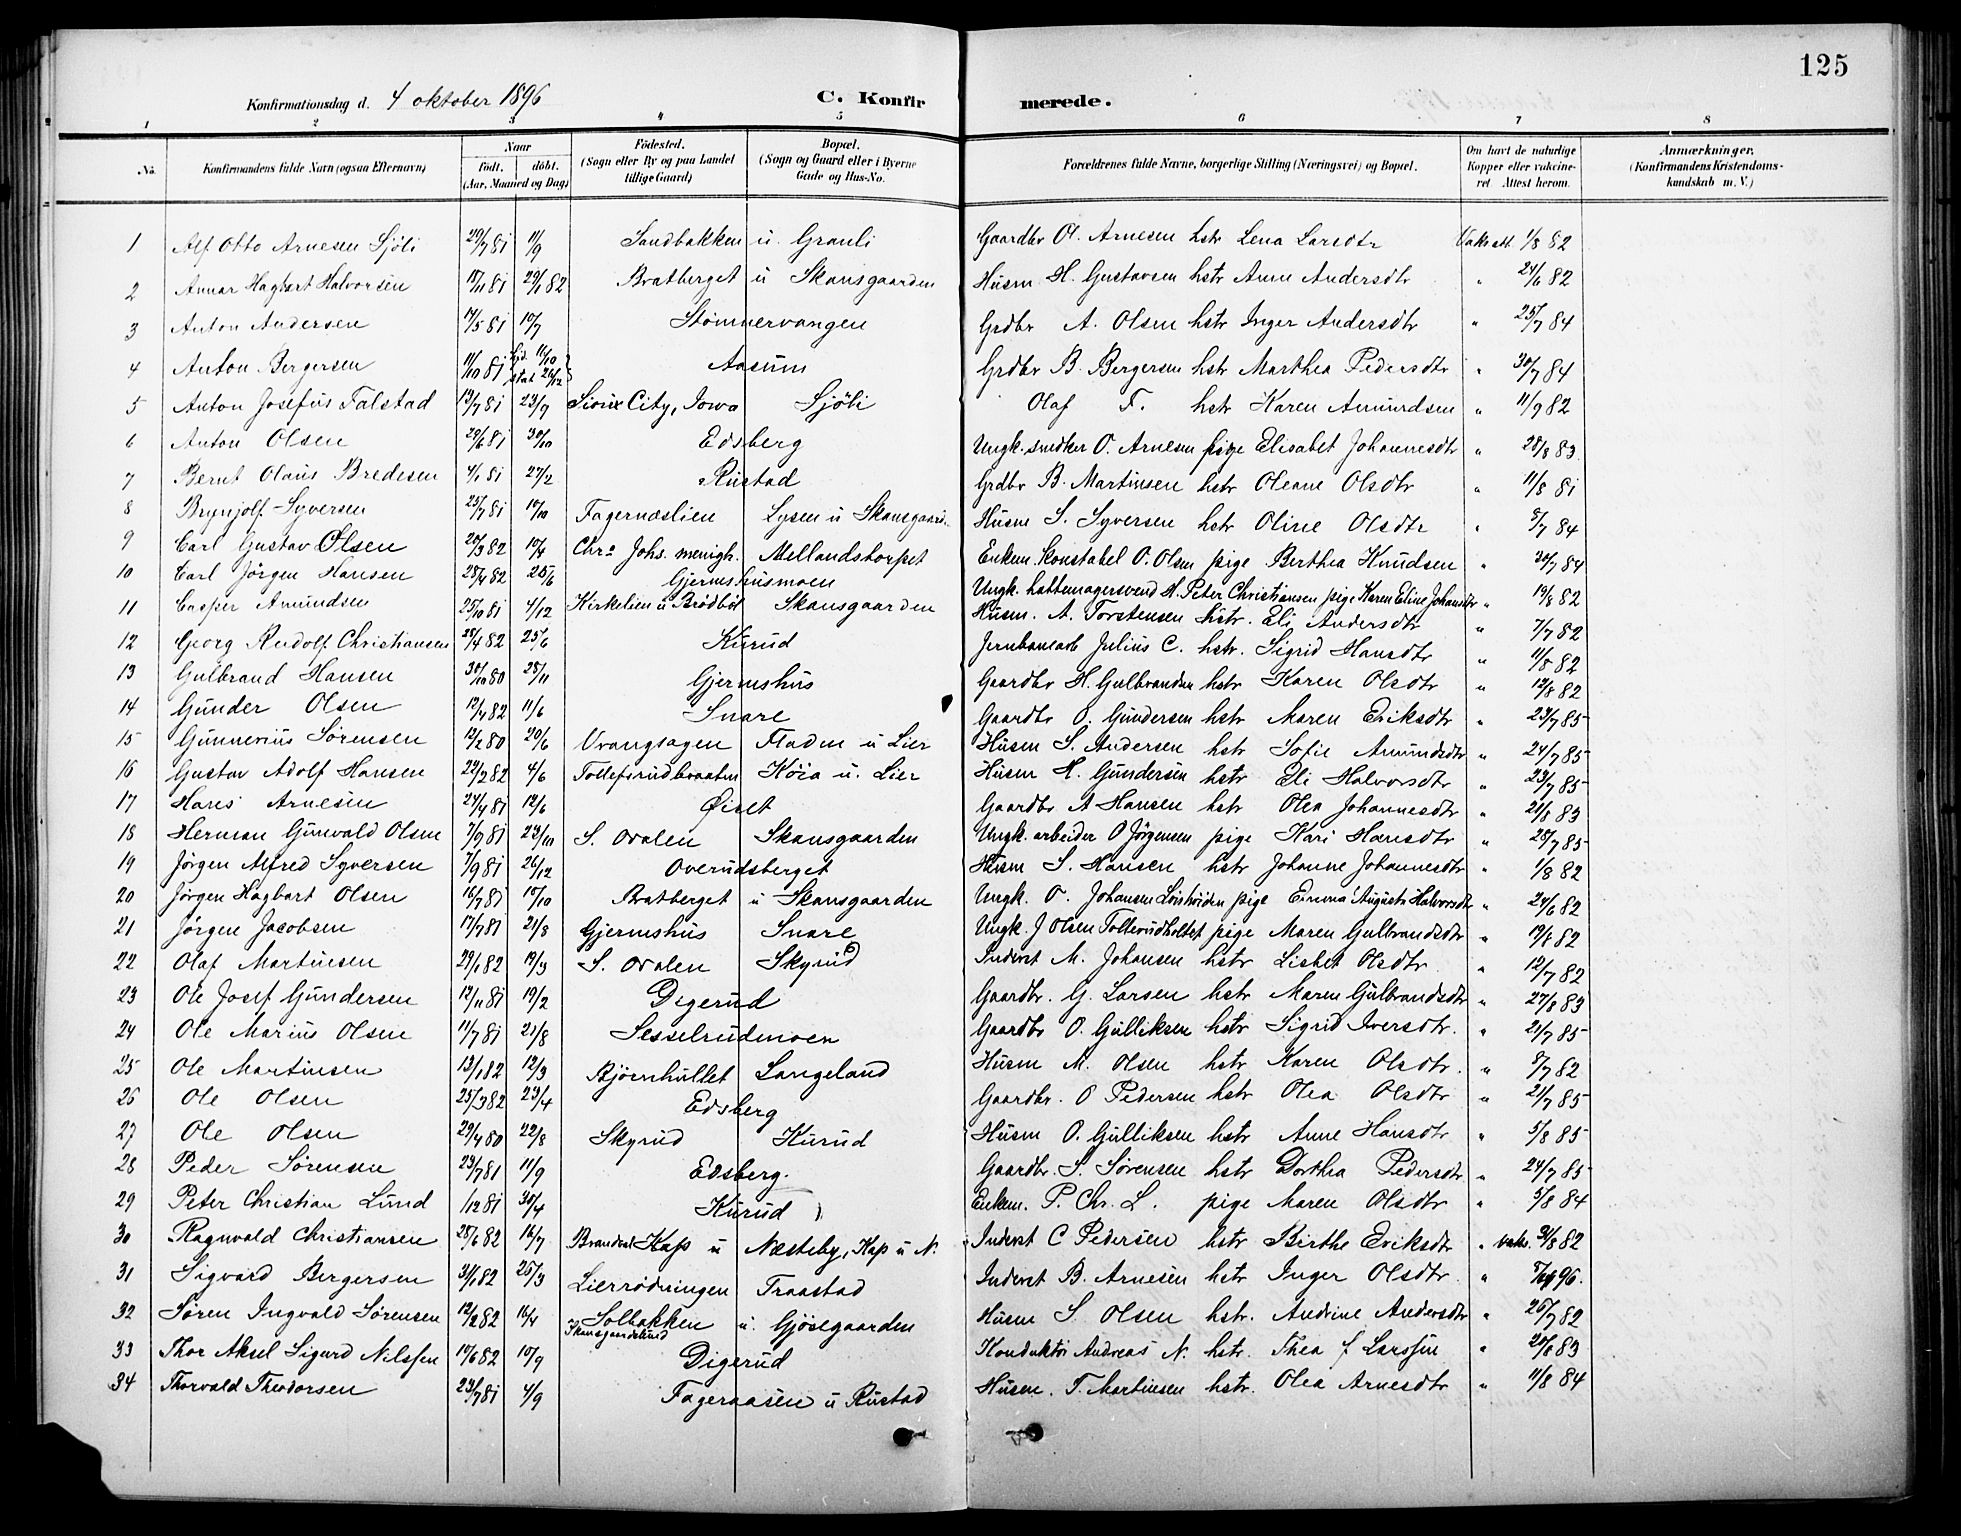 125
Konfirmationsdag d. 4 oktober 1896 C. Konfirmerede.
1 2 3 4 5 6 7 8
No. Konfirmandens fulde Navn (ogsaa Efternavn) Naar födt. döbt. (Aar, Maaned og Dag) Födested. (Sogn eller By og paa Landet tillige Gaard) Bopæl. (Sogn og Gaard eller i Byerne Gade og Hus-No. Forældrenes fulde Navne, borgerlige Stilling (Næringsvei) og Bopæl. Om havt de naturlige Kopper eller vakcineret. Attest herom. Anmærkninger. (Konfirmandens Kristendomskundskab m. V.)
1 Alf Otto Arnesen Sjöli 29/7 81 11/9 Sandbakken u. Granli Gaardbr Ol. Arnesen hstr Lena Larsdtr Vakc att 1/8 82
2 Annar Hagbart Halvorsen 15/11 81 29/1 82 Bratberget u Skansgaarden Husm H. Gustavsen hstr Anne Andersdtr " 24/6 82
3 Anton Andersen 14/5 81 10/7 Stömnervangen Grdbr A. Olsen hstr Inger Andersdtr " 25/7 84
4 Anton Bergersen 11/10 81 hjd. 11/10 stad 26/12 Aasum Grdbr B. Bergersen hstr Marthea Pedersdtr " 30/7 84
5 Anton Josefus Falstad 13/7 81 23/9 Sioux City, Iowa Sjöli Olaf F. hstr Karen Amundsen " 11/9 82
6 Anton Olsen 20/6 81 30/10 Edsberg Ungk. snedker O. Arnesen pige Elisabet Johannesdtr " 28/8 83
7 Bernt Olaus Bredesen 4/1 81 27/2 Rustad Grdbr B. Martinsen hstr Oleane Olsdtr " 11/8 81
8 Brynjolf Syversen 25/7 81 16/10 Fagernæslien Lysen u Skansgaard. Husm S. Syversen hstr Oline Olsdtr " 8/7 84
9 Carl Gustav Olsen 20/3 82 10/4 Chr.a Johs. menigh. Mellandstorpet Enkem. Konstabel O. Olsen pige Berthea Knudsen " 30/7 84
10 Carl Jörgen Hansen 28/4 82 25/6 Gjermshusmoen Ungk. hattemagersvend H. Peter Christiansen pige Karen Eline Johansdtr " 19/8 82
11 Casper Amundsen 25/10 81 4/12 Kirkelien u Brödböl Skansgaarden Husm. A. Torstensen hstr. Eli Andersdtr " 7/7 82
12 Georg Rudolf Christiansen 28/4 82 25/6 Kurud Jernbanearb Julius C. hstr. Sigrid Hansdtr " 11/8 82
13 Gulbrand Hansen 30/10 80 28/11 Gjermshus Gaardbr H. Gulbrandsen hstr Karen Olsdtr " 12/8 82
14 Gunder Olsen 12/4 82 11/6 Snare Gaardbr O. Gundersen hstr Maren Eriksdtr " 23/7 85
15 Gunnerius Sørensen 12/2 80 20/6 Vrangsagen Fladen u Lier Husm S. Andersen hstr Sofie Amundsdtr " 24/7 85
16 Gustav Adolf Hansen 22/2 82 4/6 Tollefsrudbraaten Köia u. Lier Husm H. Gundersen hstr Eli Halvorsdtr " 23/7 85
17 Hans Arnesen 27/4 81 12/6 Øiset Gaardbr A Hansen hstr Olea Johannesdtr " 21/8 83
18 Herman Gunvald Olsen 7/9 81 23/10 S. Ovalen Skansgaarden Ungk. arbeider O Jörgensen pige Kari Hansdtr " 28/7 85
19 Jörgen Alfred Syversen 7/9 81 26/12 Overudsberget Husm S. Hansen hstr Johanne Johannesdtr " 1/8 82
20 Jörgen Hagbart Olsen 16/7 81 10/10 Bratberget u Skansgaarden Ungk. O. Johansen pige Emma Augusta Halvorsdtr " 24/6 82
21 Jörgen Jacobsen 17/7 81 21/8 Gjermshus Snare Ungk. J Olsen Tollerudholtet pige Maren Gulbrandsdtr " 19/8 82
22 Olaf Martinsen 29/1 82 19/3 S. Ovalen Skyrud Inderst M. Johansen hstr Lisbet Olsdtr " 12/7 82
23 Ole Josef Gundersen 13/11 81 19/2 Digerud Gaardbr. G. Larsen hstr Maren Gulbrandsdtr " 27/8 83
24 Ole Marius Olsen 11/7 81 21/8 Sesselrudmoen Gaardbr O. Gulliksen hstr Sigrid Iversdtr. " 21/7 85
25 Ole Martinsen 13/1 82 12/3 Bjørnhullet Langeland Husm M. Olsen hstr Karen Olsdtr. " 8/7 82
26 Ole Olsen 25/3 82 23/4 Edsberg Gaardbr. O Pedersen hstr Olea Olsdtr " 21/7 85
27 Ole Olsen 29/4 80 22/8 Skyrud Kurud Husm O. Gulliksen hstr Anne Hansdtr " 5/8 85
28 Peder Sørensen 23/7 81 11/9 Edsberg. Gaardbr. S. Sørensen hstr Dorthea Pedersdtr " 24/7 85
29 Peter Christian Lund 1/12 81 30/4 Kurud Enkem. P. Chr. L. pige Maren Olsdtr " 5/8 84
30 Ragnvald Christiansen 28/6 82 16/7 Brandval Kap u Næsteby, Kap u N. Inderst C Pedersen hstr Birthe Eriksdtr " vakc. 31/8 82
31 Sigvard Bergersen 31/1 82 26/3 Lierrödningen Traastad Inderst B. Arnesen hstr Inger Olsdtr. " 96.
32 Søren Ingvald Sørensen 12/2 82 16/4 Solbakken u. Gjösegaarden Husm S. Olsen hstr. Andrine Andersdtr " 26/7 82
33 Thor Aksel Sigurd Nilssen 19/6 82 10/9 Digerud Konduktör Andreas N. hstr. Thea f Larssen " 20/8 83
34 Thorvald Theodorsen 23/7 81 4/9 Fageraasen u Rustad Husm. T. Martinsen hstr. Olea Arnesdtr " 11/8 84